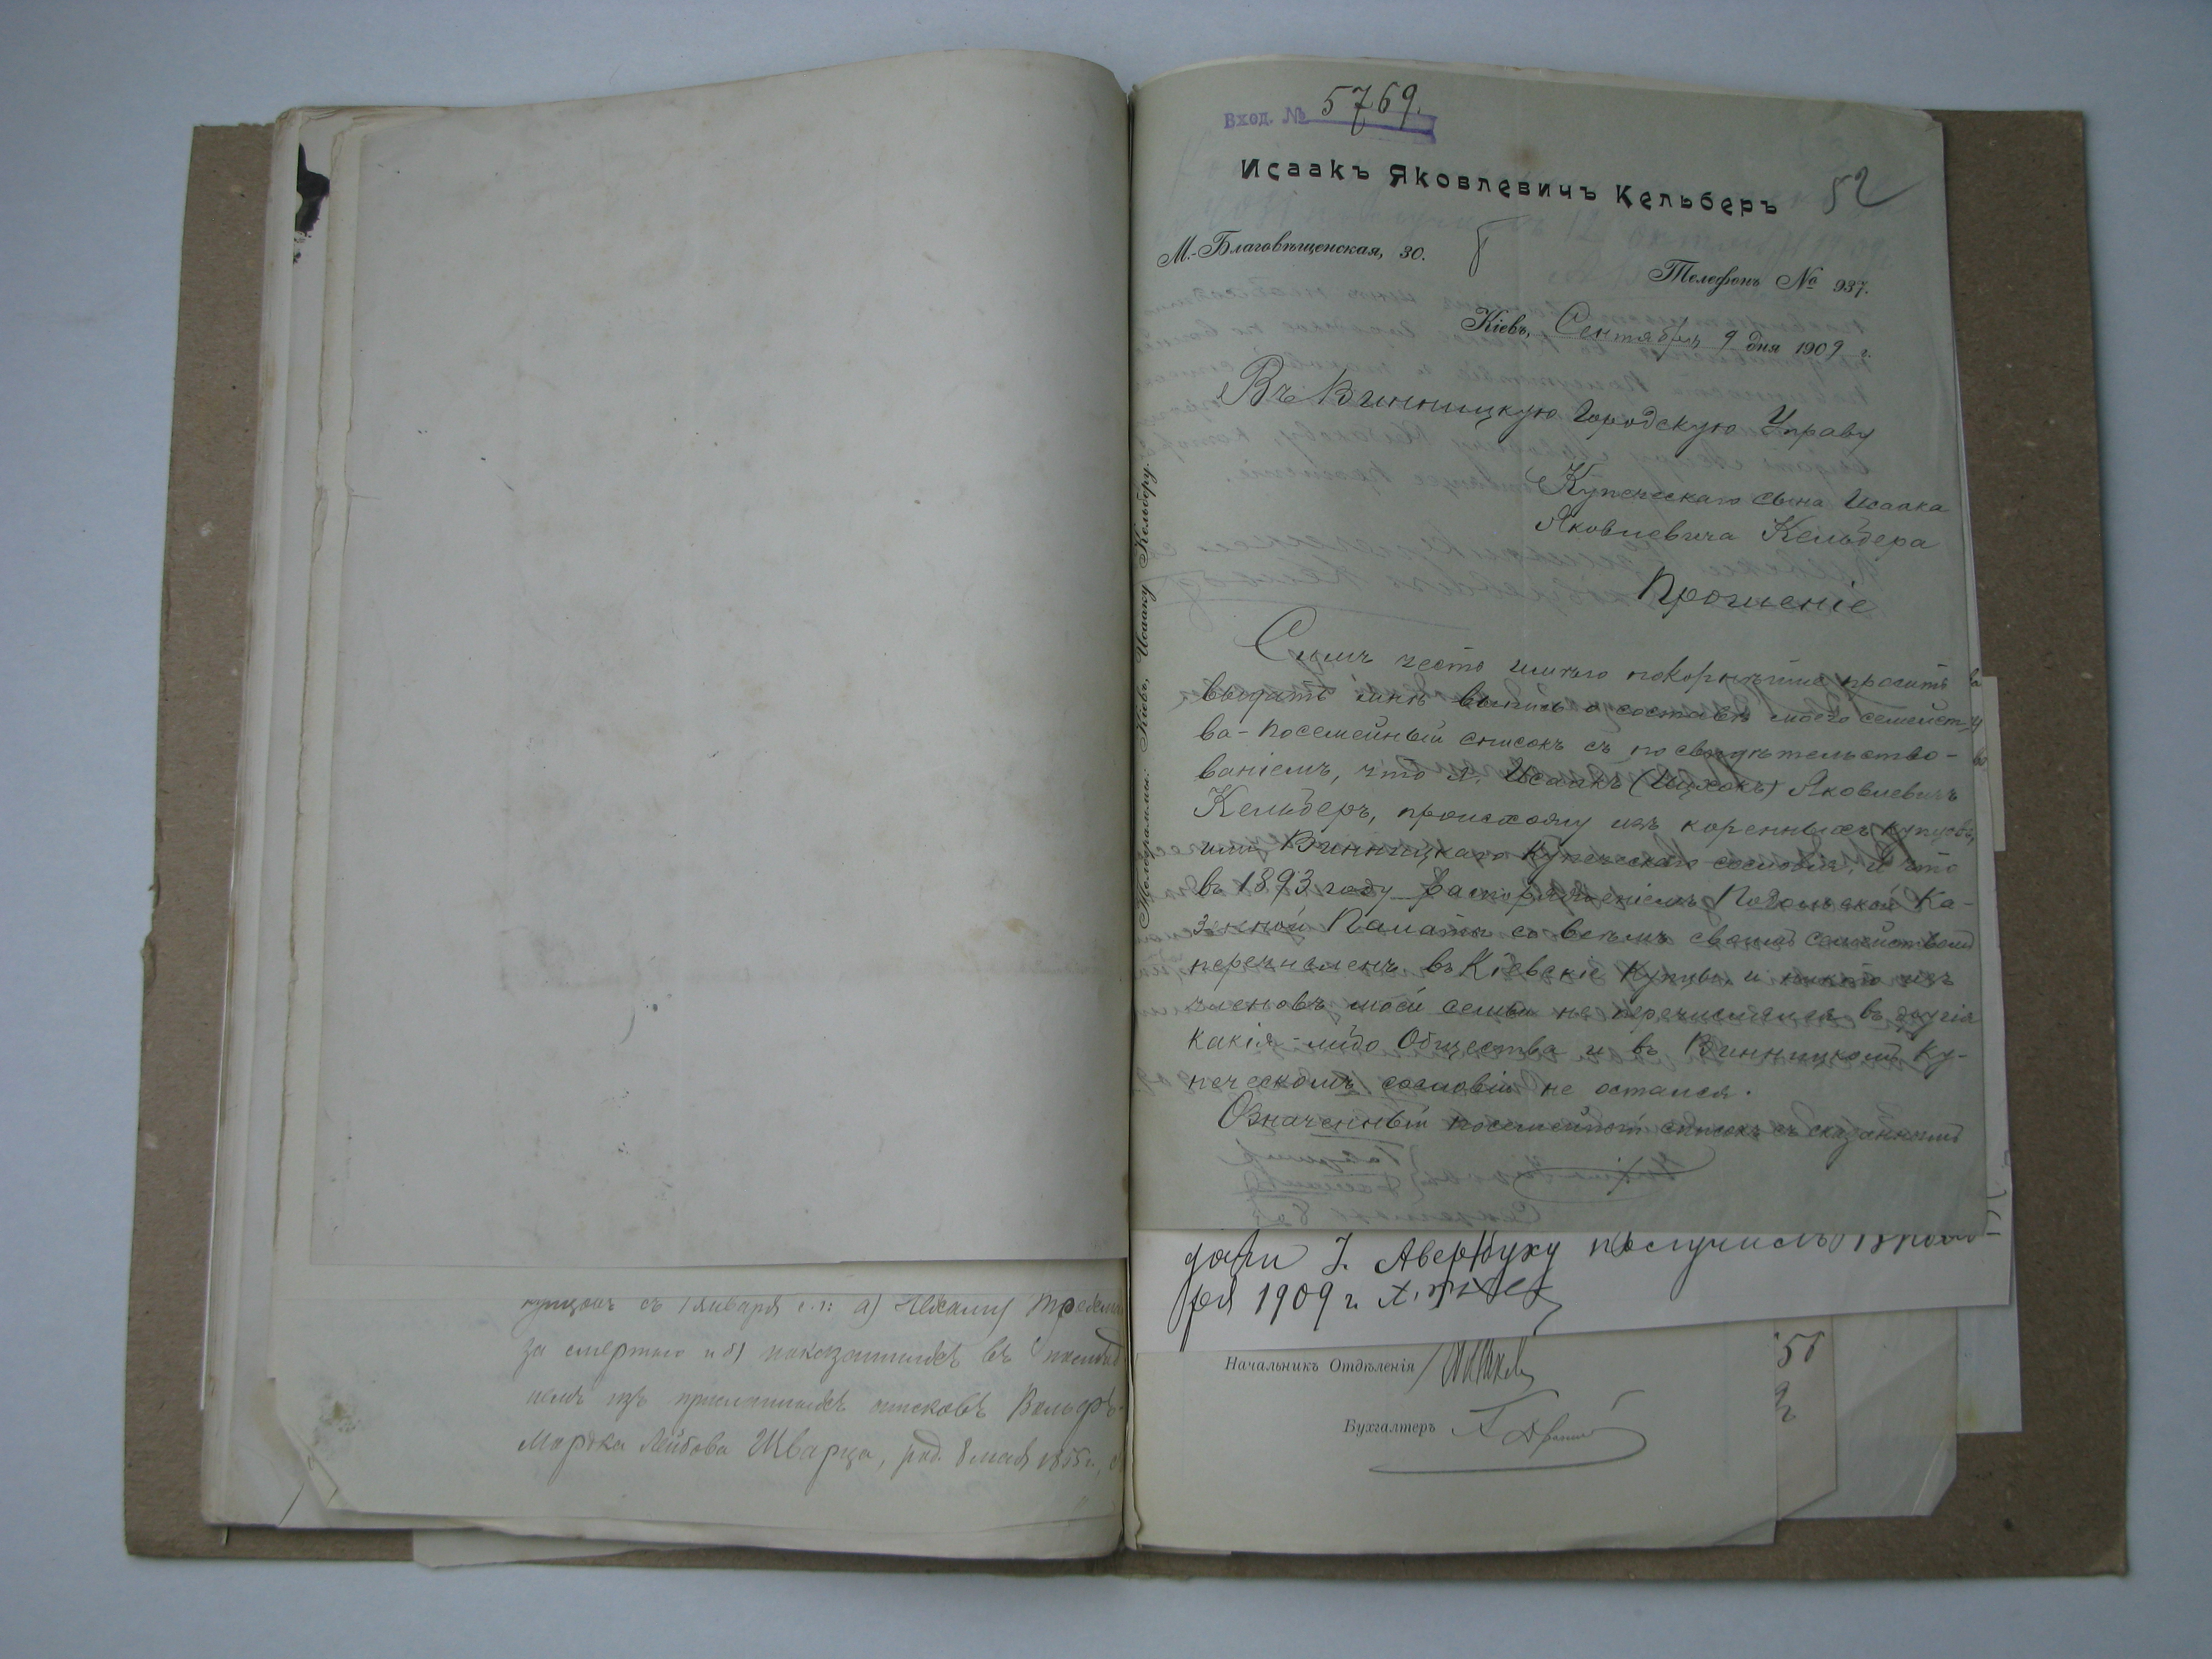 купцомъ съ 1 января с.г: а)
за смертью и б) показанныхъ въ
немъ изъ присланныхъ списковъ Вольфъ-
Мордка Лейбова Шварца, род. 8 мая 1855 г.,
Вход. № 5769.
52
Исаакъ Яковлевичъ Кельберъ
М.-Благовѣщенская, 30.
Телефонъ № 937.
Кіевъ, Сентября 9 дня 1909 г.
Телеграммы: Кіевъ, Исааку Кельберу.
Въ Винницкую Городскую Управу
Купеческаго сына Исаака
Яковлевича Кельбера
Прошеніе
Симъ честь имѣю покорнѣйше просить
выдать мнѣ выпись о составѣ моего семейст-
ва - посемейный списокъ съ посвидѣтельство-
ваніемъ, что я, Исаакъ (Ицхокъ) Яковлевичъ
Кельберъ, происхожу изъ коренныхъ купцовъ,
или Винницкаго Купеческаго сословія, и что
въ 1893 году распоряженіемъ Подольской Ка-
зенной Палаты со всѣмъ своимъ семействомъ
перечисленъ въ Кіевскіе Купцы и никто изъ
членовъ моей семьи не перечислялся въ другія
какія-либо Общества и въ Винницкомъ Ку-
печескомъ сословіи не остался.
Означенный посемейный списокъ съ сказаннымъ
І. Авербуху получилъ
ря 1909 г.
Начальникъ Отдѣленія
Бухгалтеръ